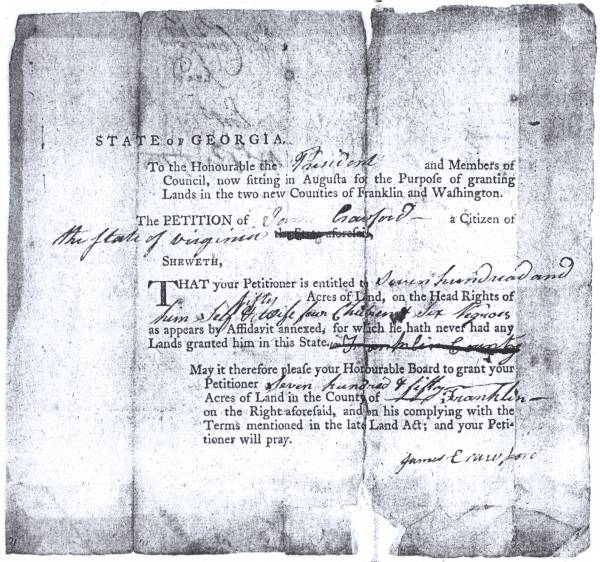 STATE OF GEORGIA.
To the Honourable the President and Members of
Council, now fitting in Augufta for the Purpofe of granting
Lands in the two new Counties of Franklin and Wafhington.
The PETITION of James Crawford a Citizen of
the State of virginia the State aforefaid,
SHEWETH,
THAT your Petitioner is entitled to Seven hundread and
fifty Acres of Land, on the Head Rights of
him Self & Wife four Children & Six Negroes
as appears by Affidavit annexed, for which he hath never had any
Lands granted him in this State. in Franklin County
May it therefore pleafe your Honourable Board to grant your
Petitioner Seven hundred & fifty
Acres of Land in the County of Franklin
on the Right aforefaid, and on his complying with the
Terms mentioned in the late Land Act; and your Peti-
tioner will pray.
James Crawford